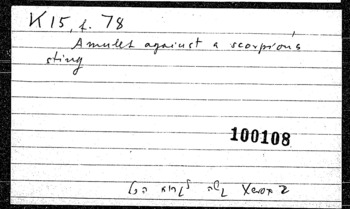 K 15, f. 78
Amulet against a scorpion's
sting
100108
Xerox 2